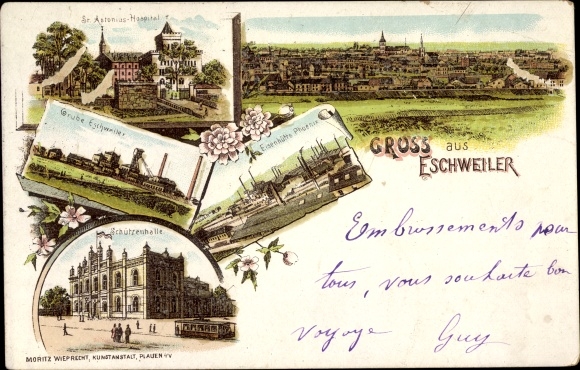 St. Antonius-Hospital
Grube Eschweiler
Eisenhütte Phoenix
GROSS aus
ESCHWEILER
Schützenhalle
Embrassements pour
tous, vous souhaite bon
voyage Guy
MORITZ WIEPRECHT, KUNSTANSTALT, PLAUEN i/V